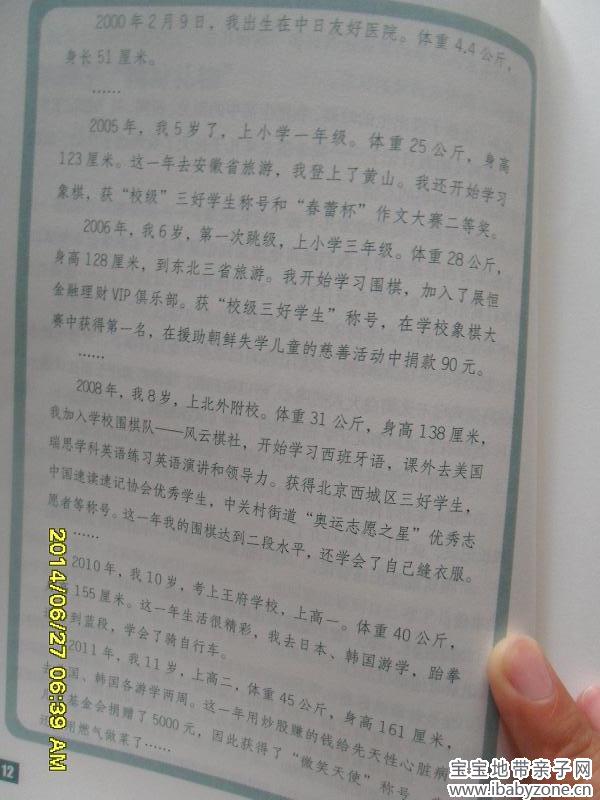 2000年2月9日，我出生在中日友好医院。体重4.4公斤，
身长51厘米。
……
2005年，我5岁了，上小学一年级。体重25公斤，身高
123厘米。这一年去安徽省旅游，我登上了黄山。我还开始学习
象棋，获“校级”三好学生称号和“春蕾杯”作文大赛二等奖。
2006年，我6岁，第一次跳级，上小学三年级。体重28公斤，
身高128厘米，到东北三省旅游。我开始学习围棋，加入了晨恒
金融理财VIP俱乐部。获“校级三好学生”称号，在学校象棋大
赛中获得第一名，在援助朝鲜失学儿童的慈善活动中捐款90元。
……
2008年，我8岁，上北外附校。体重31公斤，身高138厘米，
我加入学校围棋队——风云棋社，开始学习西班牙语，课外去美国
瑞思学科英语练习英语演讲和领导力。获得北京西城区三好学生，
中国速读速记协会优秀学生，中关村街道“奥运志愿之星”优秀志
愿者等称号。这一年我的围棋达到二段水平，还学会了自己缝衣服。
……
2010年，我10岁，考上王府学校，上高一。体重40公斤，
155厘米。这一年生活很精彩，我去日本、韩国游学，跆拳
到蓝段，学会了骑自行车。
2011年，我11岁，上高二，体重45公斤，身高161厘米，
国、韩国各游学两周。这一年用炒股赚的钱给先天性心脏病
基金会捐赠了5000元，因此获得了“微笑天使”称号
用燃气做菜了……
12
2014/06/27 06:39 AM
宝宝地带亲子网
www.ibabyzone.cn